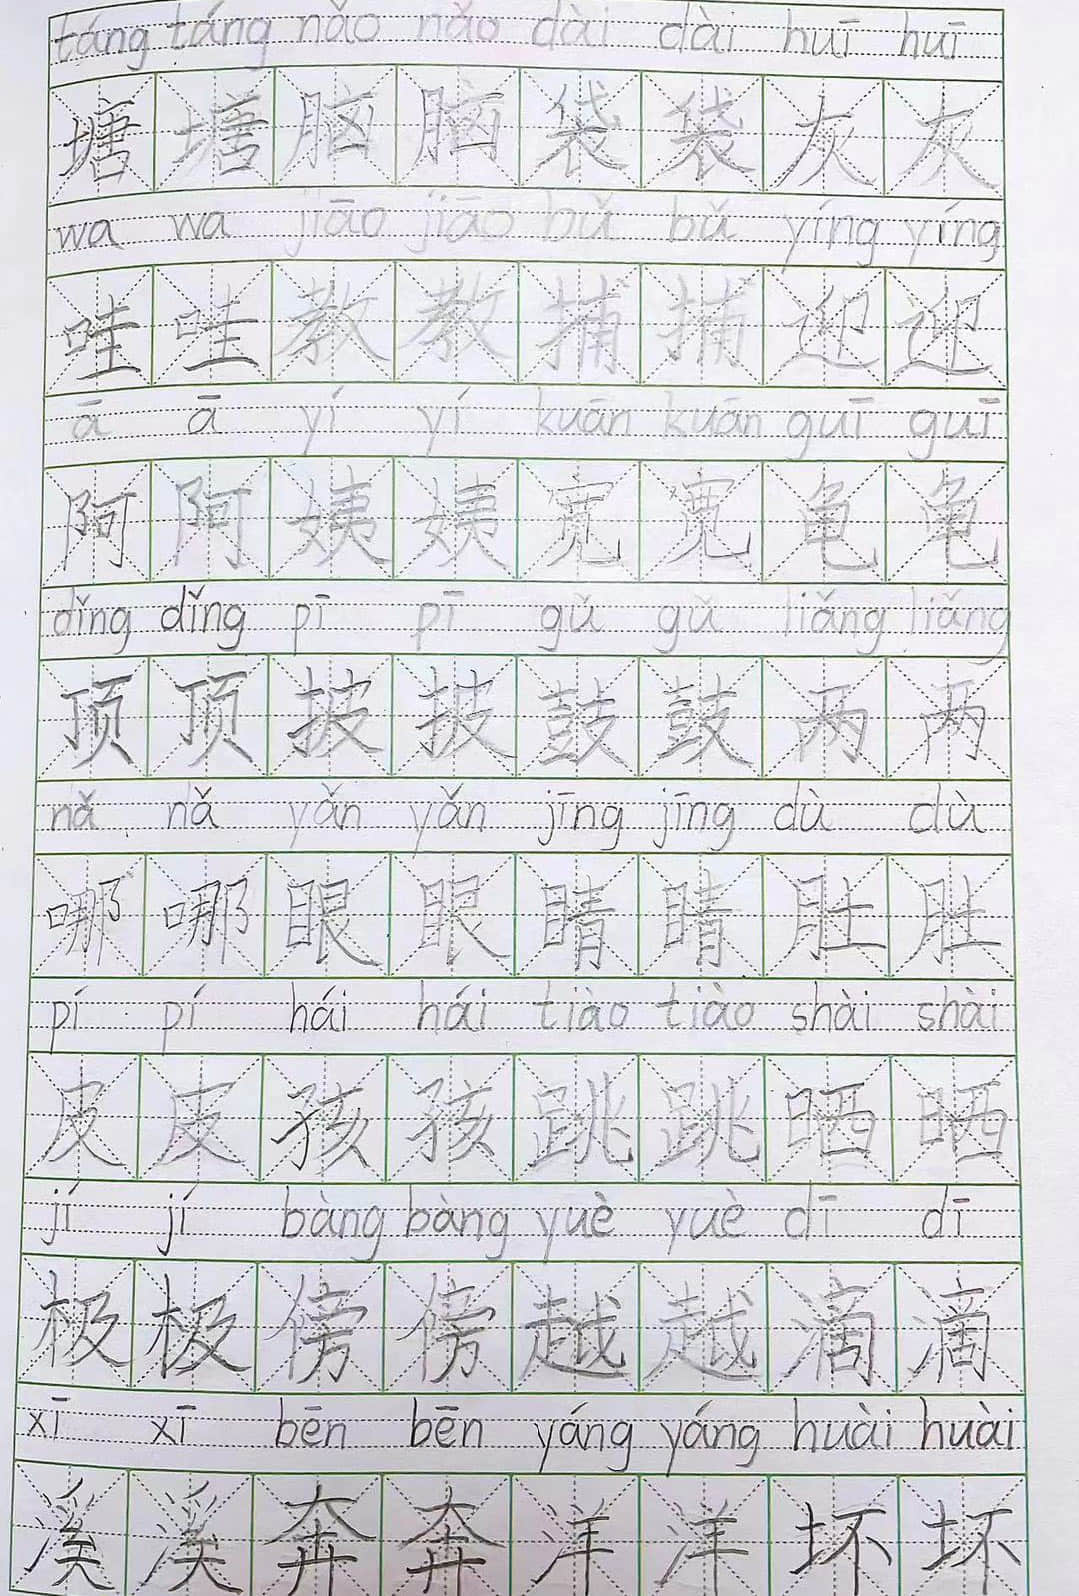 táng táng nǎo nǎo dài dài huī huī
塘 塘 脑 脑 袋 袋 灰 灰
wa wa jiāo jiāo bǔ bǔ yíng yíng
哇 哇 教 教 捕 捕 迎 迎
ā ā yí yí kuān kuān guī guī
阿 阿 姨 姨 宽 宽 龟 龟
dǐng dǐng pī pī gǔ gǔ liǎng liǎng
顶 顶 披 披 鼓 鼓 两 两
nǎ nǎ yǎn yǎn jīng jīng dù dù
哪 哪 眼 眼 睛 睛 肚 肚
pí pí hái hái tiào tiào shài shài
皮 皮 孩 孩 跳 跳 晒 晒
jí jí bàng bàng yuè yuè dī dī
极 极 傍 傍 越 越 滴 滴
xī xī bēn bēn yáng yáng huài huài
溪 溪 奔 奔 洋 洋 坏 坏